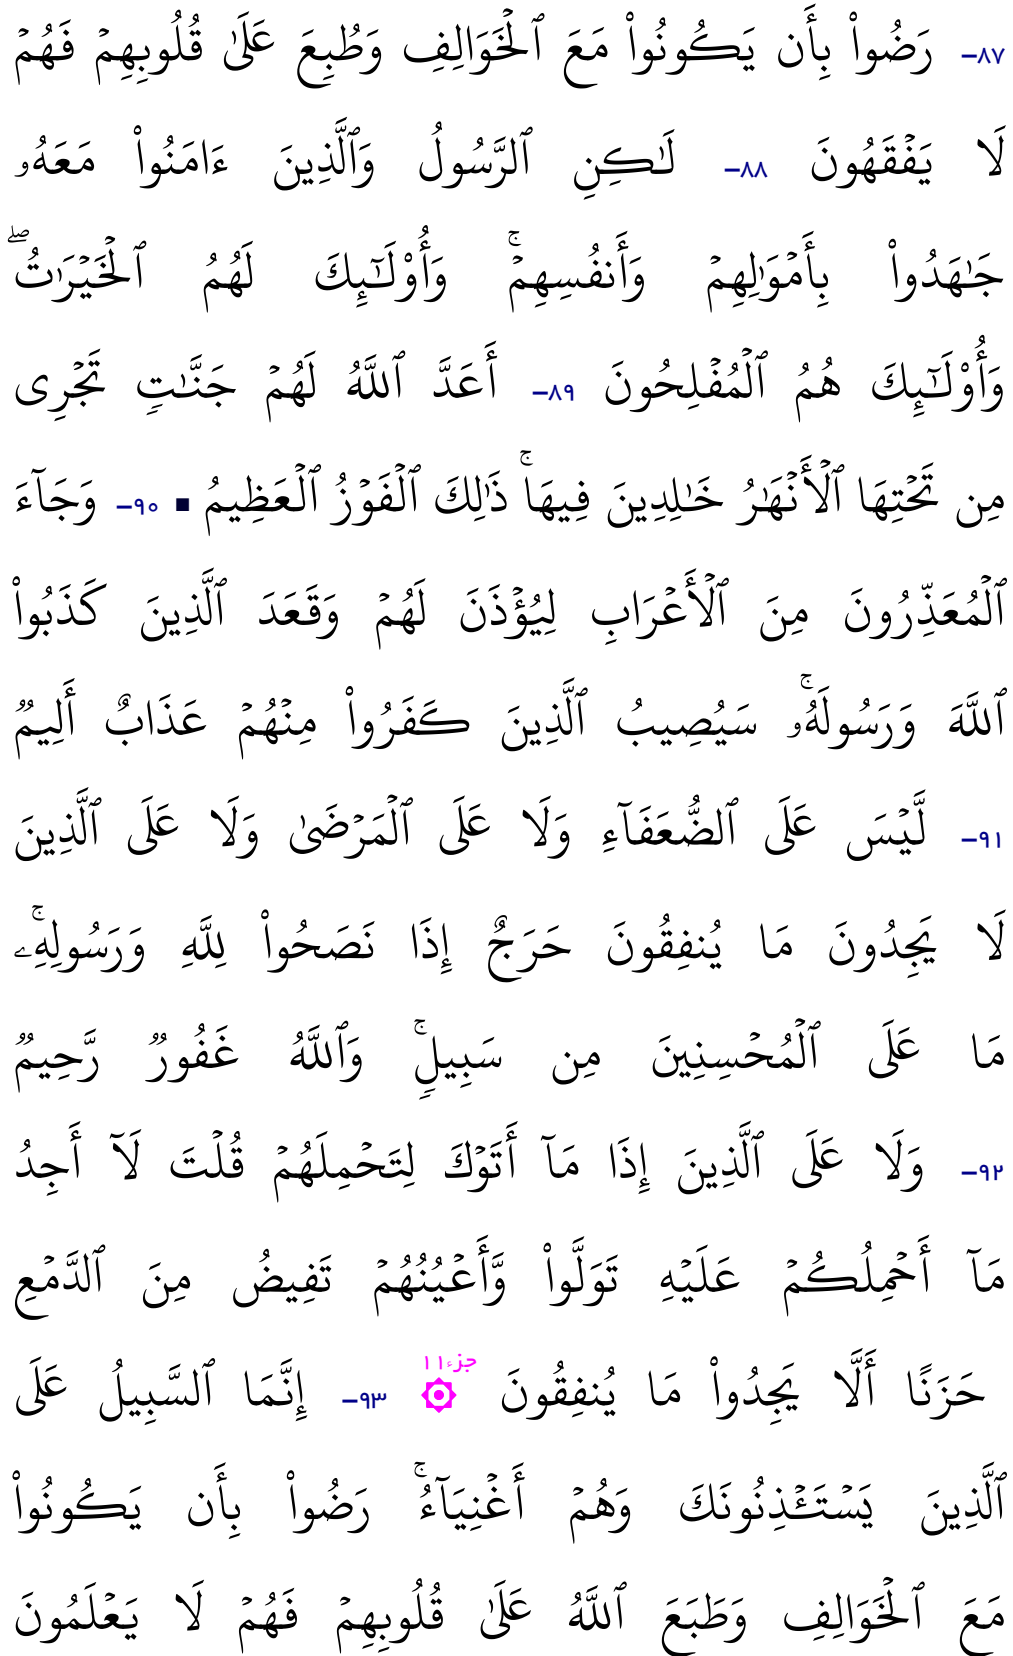 ٨٧- رَضُوا۟ بِأَن يَكُونُوا۟ مَعَ ٱلْخَوَالِفِ وَطُبِعَ عَلَىٰ قُلُوبِهِمْ فَهُمْ
لَا يَفْقَهُونَ ٨٨- لَـٰكِنِ ٱلرَّسُولُ وَٱلَّذِينَ ءَامَنُوا۟ مَعَهُۥ
جَـٰهَدُوا۟ بِأَمْوَٰلِهِمْ وَأَنفُسِهِمْ ۚ وَأُو۟لَـٰٓئِكَ لَهُمُ ٱلْخَيْرَٰتُ ۖ
وَأُو۟لَـٰٓئِكَ هُمُ ٱلْمُفْلِحُونَ ٨٩- أَعَدَّ ٱللَّهُ لَهُمْ جَنَّـٰتٍ تَجْرِى
مِن تَحْتِهَا ٱلْأَنْهَـٰرُ خَـٰلِدِينَ فِيهَا ۚ ذَٰلِكَ ٱلْفَوْزُ ٱلْعَظِيمُ ■ ٩٠- وَجَآءَ
ٱلْمُعَذِّرُونَ مِنَ ٱلْأَعْرَابِ لِيُؤْذَنَ لَهُمْ وَقَعَدَ ٱلَّذِينَ كَذَبُوا۟
ٱللَّهَ وَرَسُولَهُۥ ۚ سَيُصِيبُ ٱلَّذِينَ كَفَرُوا۟ مِنْهُمْ عَذَابٌ أَلِيمٌ
٩١- لَّيْسَ عَلَى ٱلضُّعَفَآءِ وَلَا عَلَى ٱلْمَرْضَىٰ وَلَا عَلَى ٱلَّذِينَ
لَا يَجِدُونَ مَا يُنفِقُونَ حَرَجٌ إِذَا نَصَحُوا۟ لِلَّهِ وَرَسُولِهِۦ ۚ
مَا عَلَى ٱلْمُحْسِنِينَ مِن سَبِيلٍ ۚ وَٱللَّهُ غَفُورٌ رَّحِيمٌ
٩٢- وَلَا عَلَى ٱلَّذِينَ إِذَا مَآ أَتَوْكَ لِتَحْمِلَهُمْ قُلْتَ لَآ أَجِدُ
مَآ أَحْمِلُكُمْ عَلَيْهِ تَوَلَّوا۟ وَّأَعْيُنُهُمْ تَفِيضُ مِنَ ٱلدَّمْعِ
حَزَنًا أَلَّا يَجِدُوا۟ مَا يُنفِقُونَ ۞ جزء١١ ٩٣- إِنَّمَا ٱلسَّبِيلُ عَلَى
ٱلَّذِينَ يَسْتَـْٔذِنُونَكَ وَهُمْ أَغْنِيَآءُ ۚ رَضُوا۟ بِأَن يَكُونُوا۟
مَعَ ٱلْخَوَالِفِ وَطَبَعَ ٱللَّهُ عَلَىٰ قُلُوبِهِمْ فَهُمْ لَا يَعْلَمُونَ